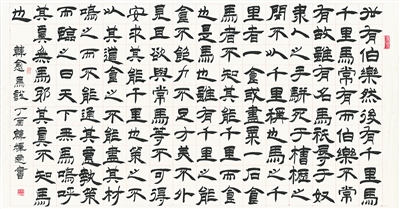 世有伯樂然後有千里馬
千里馬常有而伯樂不常
有故雖有名馬祇辱于奴
隸人之手駢死于槽櫪之
間不以千里稱也馬之千
里者一食或盡粟一石食
馬者不知其能千里而食
也是馬也雖有千里之能
食不飽力不足才美不外
見且欲與常馬等不可得
安求其能千里也策之不
以其道食之不能盡其材
鳴之不能通其意執策
而臨之曰天下無馬嗚呼
其真無馬邪其真不知馬
也
韓愈馬說丁酉